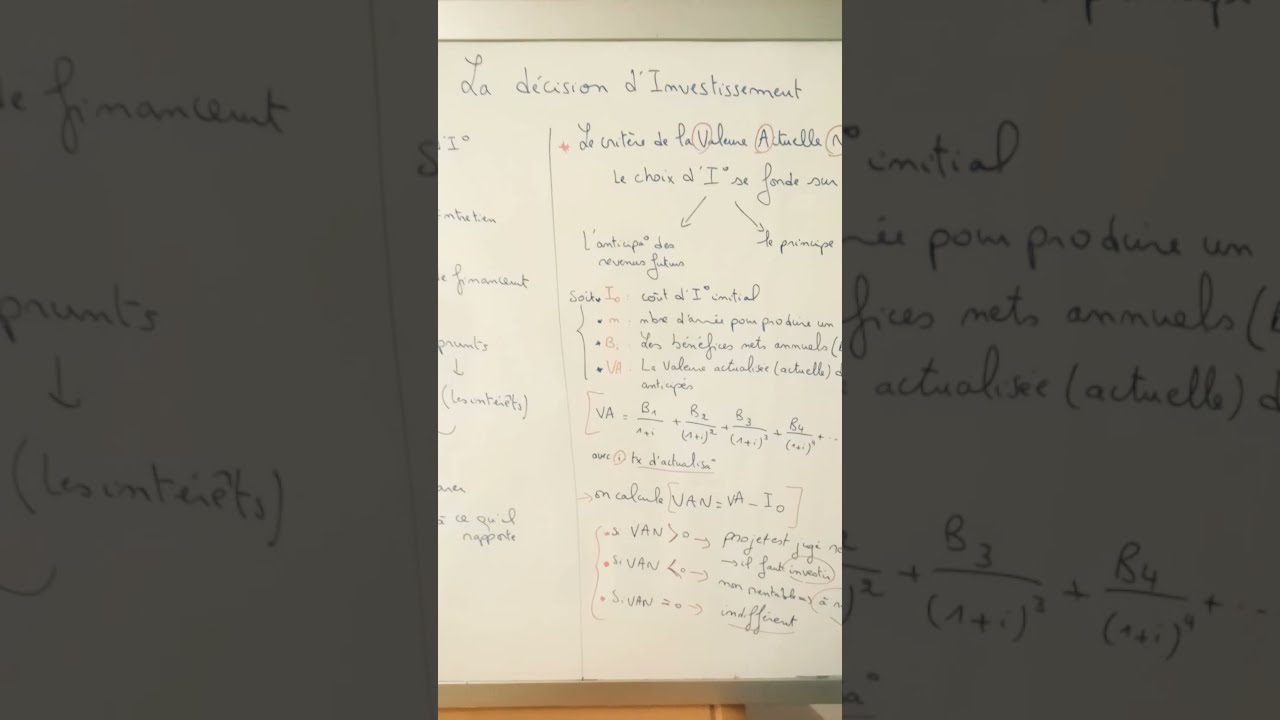 La décision d'Investissement
d'I°
entretien
de financemt
prunts
↓
(les intérêts)
à ce qu'il
rapporte
* Le critère de la Valeur Actuelle N
Le choix d'I° se fonde sur
L'anticipa° des
revenus futurs
le principe
Soit • I₀ : coût d'I° initial
• n : nbre d'année pour produire un
• Bi : Les bénéfices nets annuels (B
• VA : La Valeur actualisée (actuelle) d
anticipés
[VA = B1/1+i + B2/(1+i)² + B3/(1+i)³ + B4/(1+i)⁴ + ...
avec i tx d'actualisa°
→ on calcule [VAN = VA - I₀]
• si VAN > 0 → projet est jugé
→ il faut investir
• Si VAN < 0 → non rentable => à
• Si VAN = 0 → indifférent